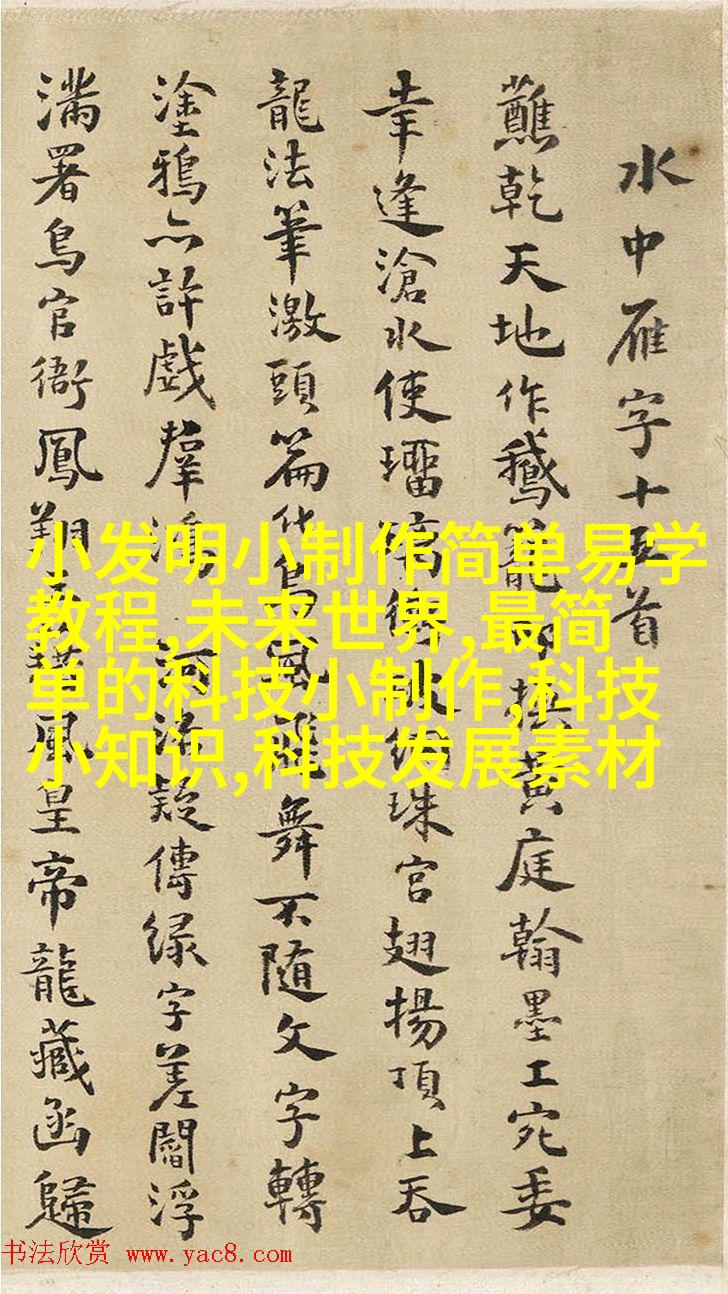 水中雁字十五首
蘸乾天地作鵝籠換黄庭翰墨工宛委
幸逢滄水使璢珠宫翅揚頂上吞
龍法筆激頭篇化鳥風飛舞不随文字轉
塗鴉亦許戲羣鴻河洛疑傳緑字差閻浮
滿署鳥官衙鳳翔風皇帝龍藏函歸
小发明小制作简单易学
教程,未来世界,最简
单的科技小制作,科技
小知识,科技发展素材
书法欣赏 www.yac8.com